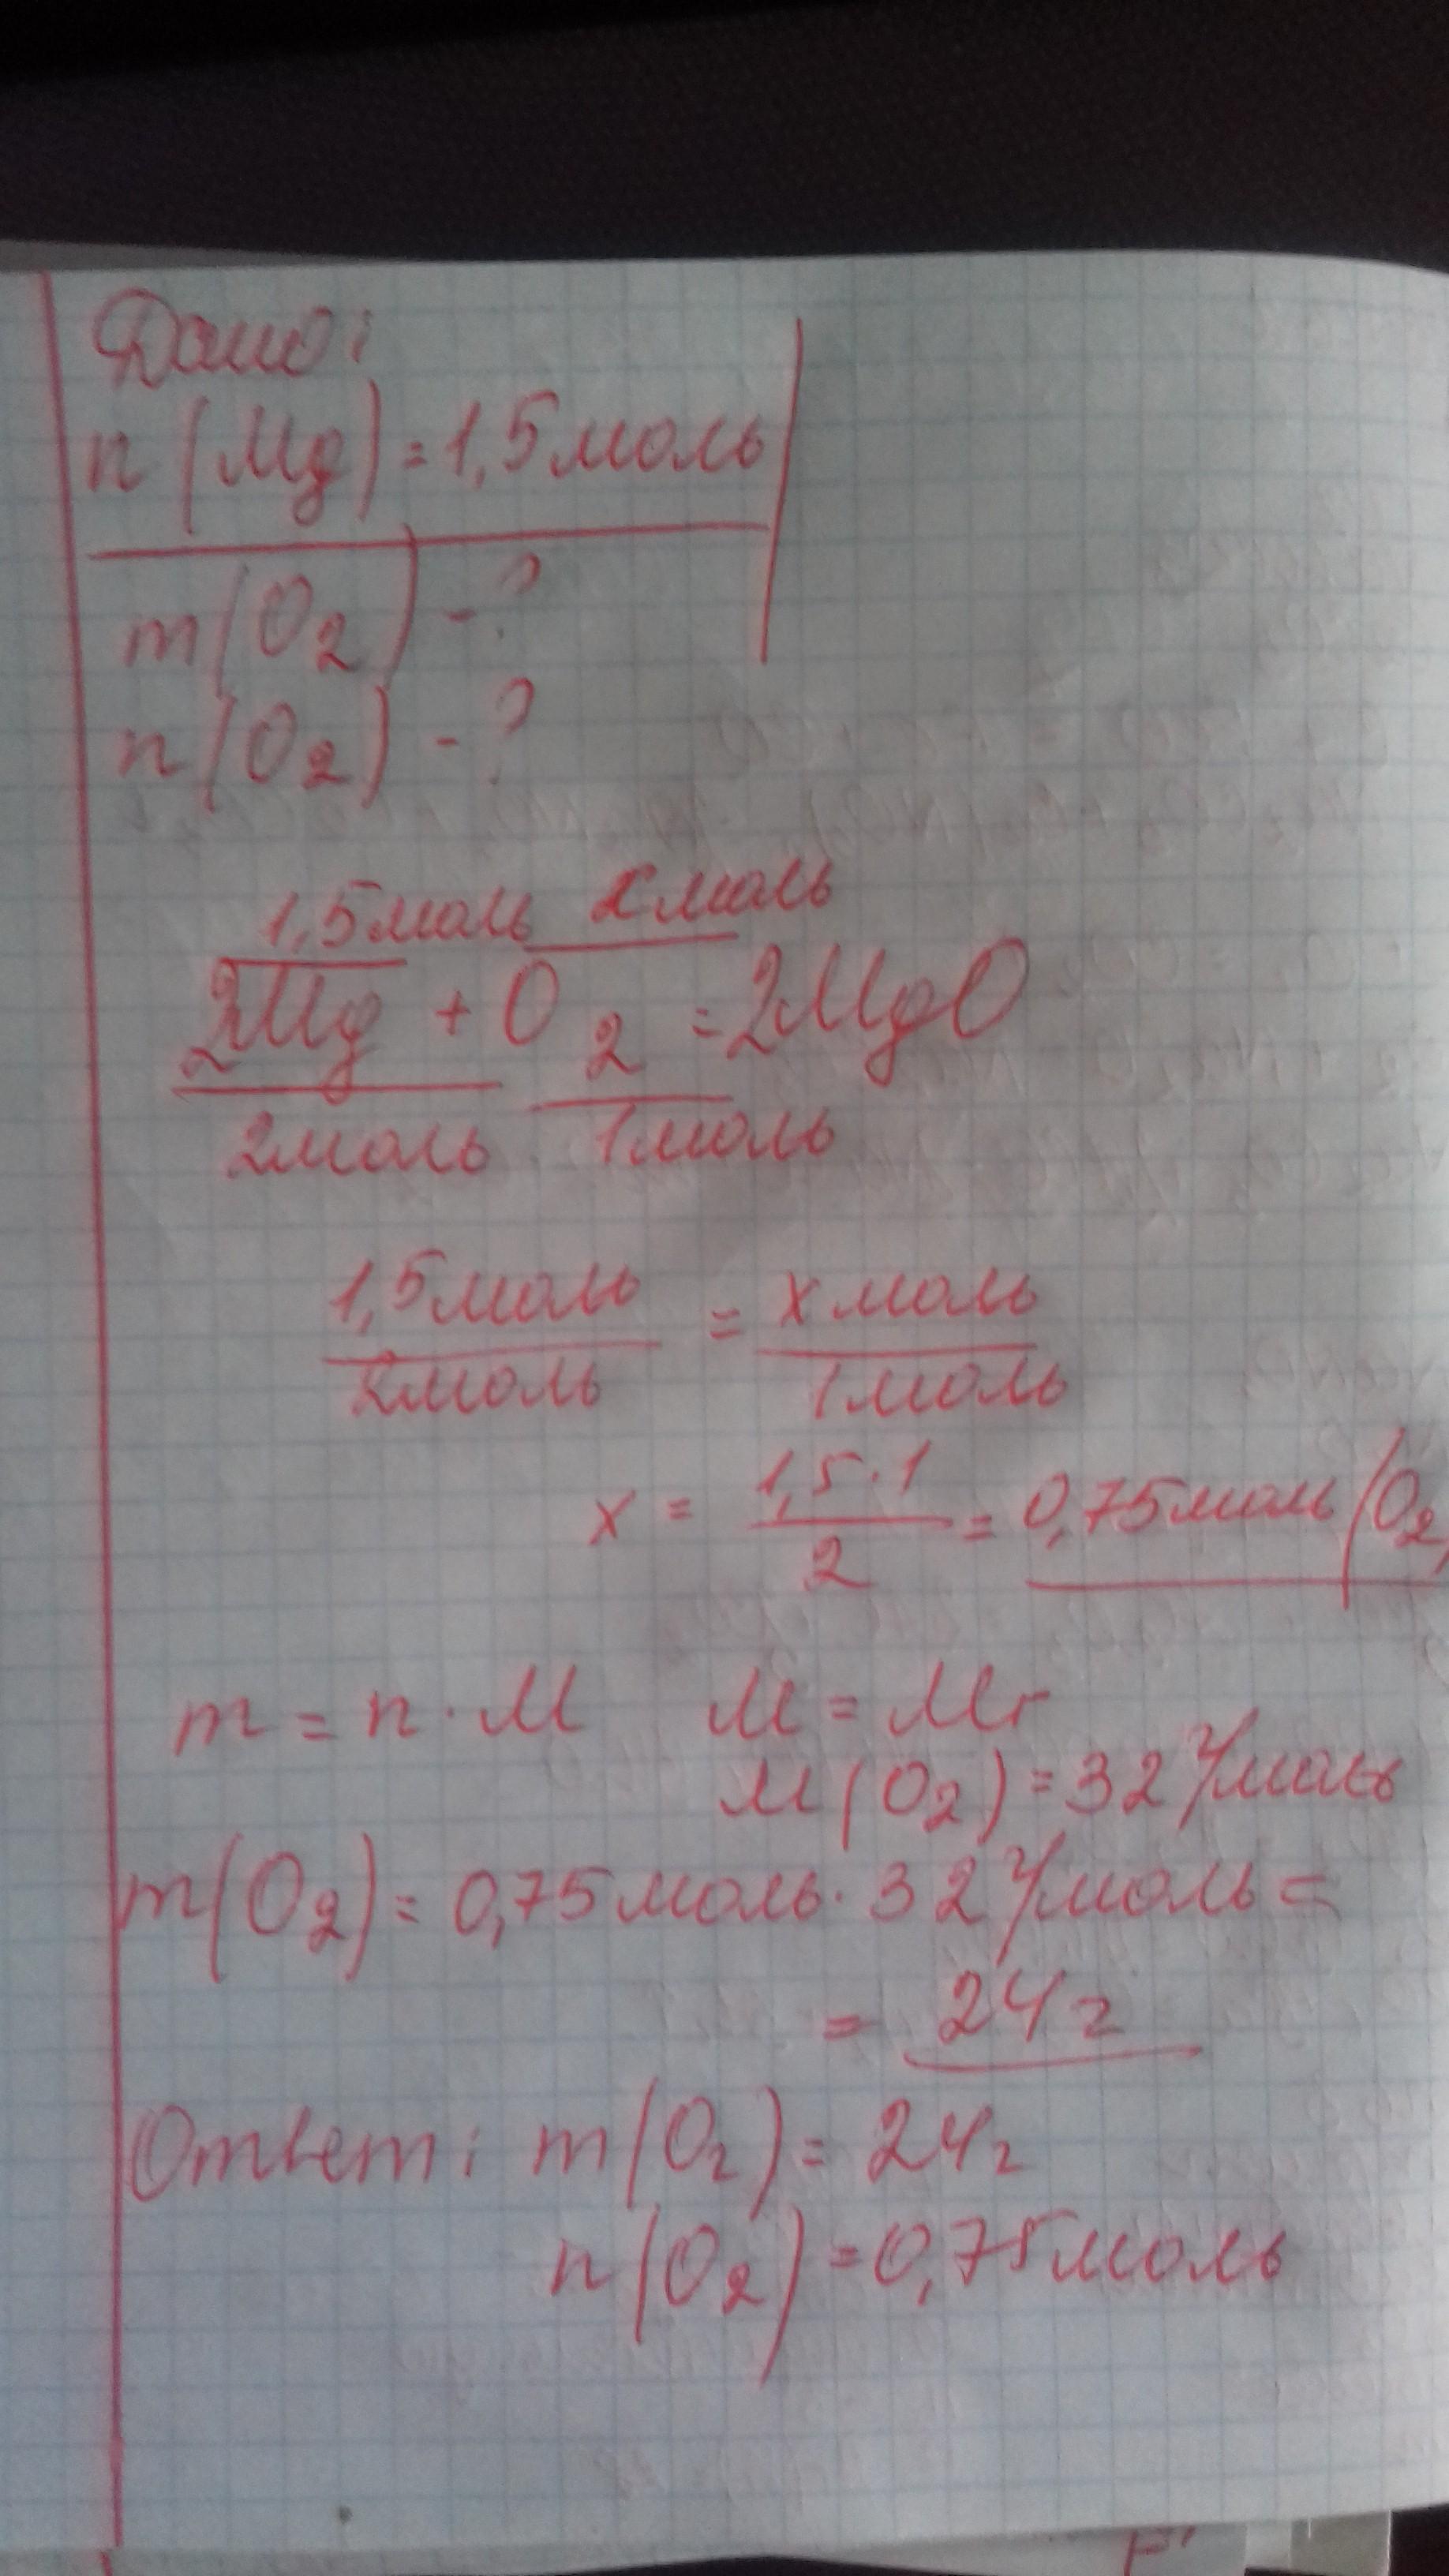 Дано:
n(Mg)=1,5моль
m(O2)-?
n(O2)-?
1,5моль xмоль
2Mg + O2 = 2MgO
2моль 1моль
1,5моль = x моль
2моль 1моль
x = 1,5·1 = 0,75моль (O2)
2
m = n · M M = Mr
M(O2) = 32 г/моль
m(O2) = 0,75моль · 32 г/моль =
= 24г
Ответ: m(O2) = 24г
n(O2) = 0,75моль